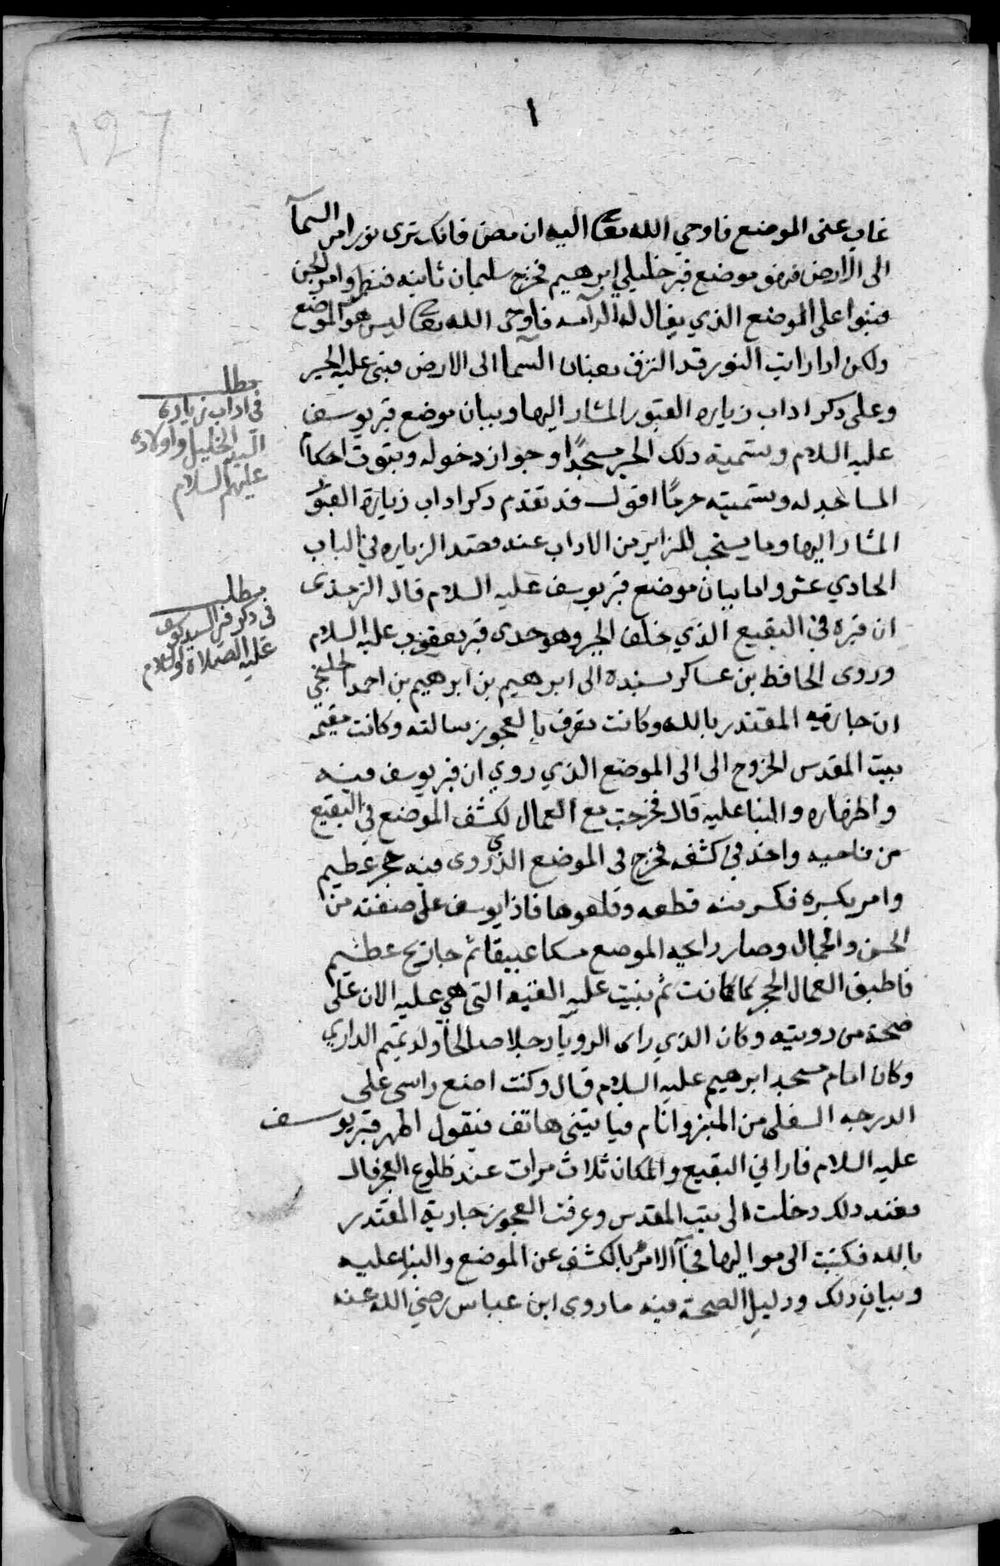 ١
127
غاب عنى الموضع فاوحى الله تعا اليه ان مض فانك ترى نورا من السمآ
الى الارض فهو موضع قبر خليلي ابرهيم فخرج سليمان ثانيه فنظر وامر الجن
فبنوا على الموضع الذي يقال له الرامه فاوحى الله تعا ليس هو الموضع
ولكن ادا رايت النور قد التزق بعنان السما الى الارض فبنى عليه الحير
وعلى دكر اداب زياره القبور المشار اليها وبيان موضع قبر يوسف
عليه السلام وتسمية دلك الحير مسجدًا وجواز دخوله وثبوت احكام
المساجد له وتسميته حرمًا اقول قد تقدم دكر اداب زيارة القبور
المشار اليها وما يستحب للزاير من الاداب عند قصد الزياره في الباب
الحادي عشر واما بيان موضع قبر يوسف عليه السلام قال الزهدى
ان قبره في البقيع الذي خلف الحير وهو حدى قبر يعقوب عليه السلام
وروى الحافظ بن عساكر بسنده الى ابرهيم بن ابرهيم بن احمد الخلنجي
ان جاريه المقتدر بالله وكانت تعرف بالعجوز سالته وكانت مقيمه
ببيت المقدس الخروج الى الى الموضع الذي روي ان قبر يوسف فيه
واظهاره والبنا عليه قال فخرجت مع العمال لكشف الموضع في البقيع
من ناحيه واخذ في كشفه فخرج فى الموضع الذي روى فيه حجر عظيم
وامر بكسره فكسر منه قطعه وقلعوها فاذا يوسف على صفته من
الحسن والجمال وصار رايحه الموضع مسكا عبيقا ثم جا ريح عظيم
فاطبق العمال الحجر كما كانت ثم بنيت عليه القبه التى هي عليه الان على
صحة من رويته وكان الذي راى الرويا رجلا صالحا ولد تميم الداري
وكان امام مسجد ابرهيم عليه السلام قال وكنت اضع راسى على
الدرجه السفلى من المنبر وانام فياتينى هاتف فيقول اظهر قبر يوسف
عليه السلام فاراني البقيع والمكان ثلاث مرات عند طلوع الفجر قال
فعند دلك دخلت الى بيت المقدس وعرفت العجوز جارية المقتدر
بالله فكتبت الى مواليها فجآ الامر بالكشف عن الموضع والبنا عليه
وبيان دلك ودليل الصحة فيه ما روى ابن عباس رضي الله عنه
مطلب
فى اداب زيارة
السيد الخليل واولاده
عليهم السلام
مطلب
فى دكر قبر السيد يوسف
عليه الصلاة والسلام